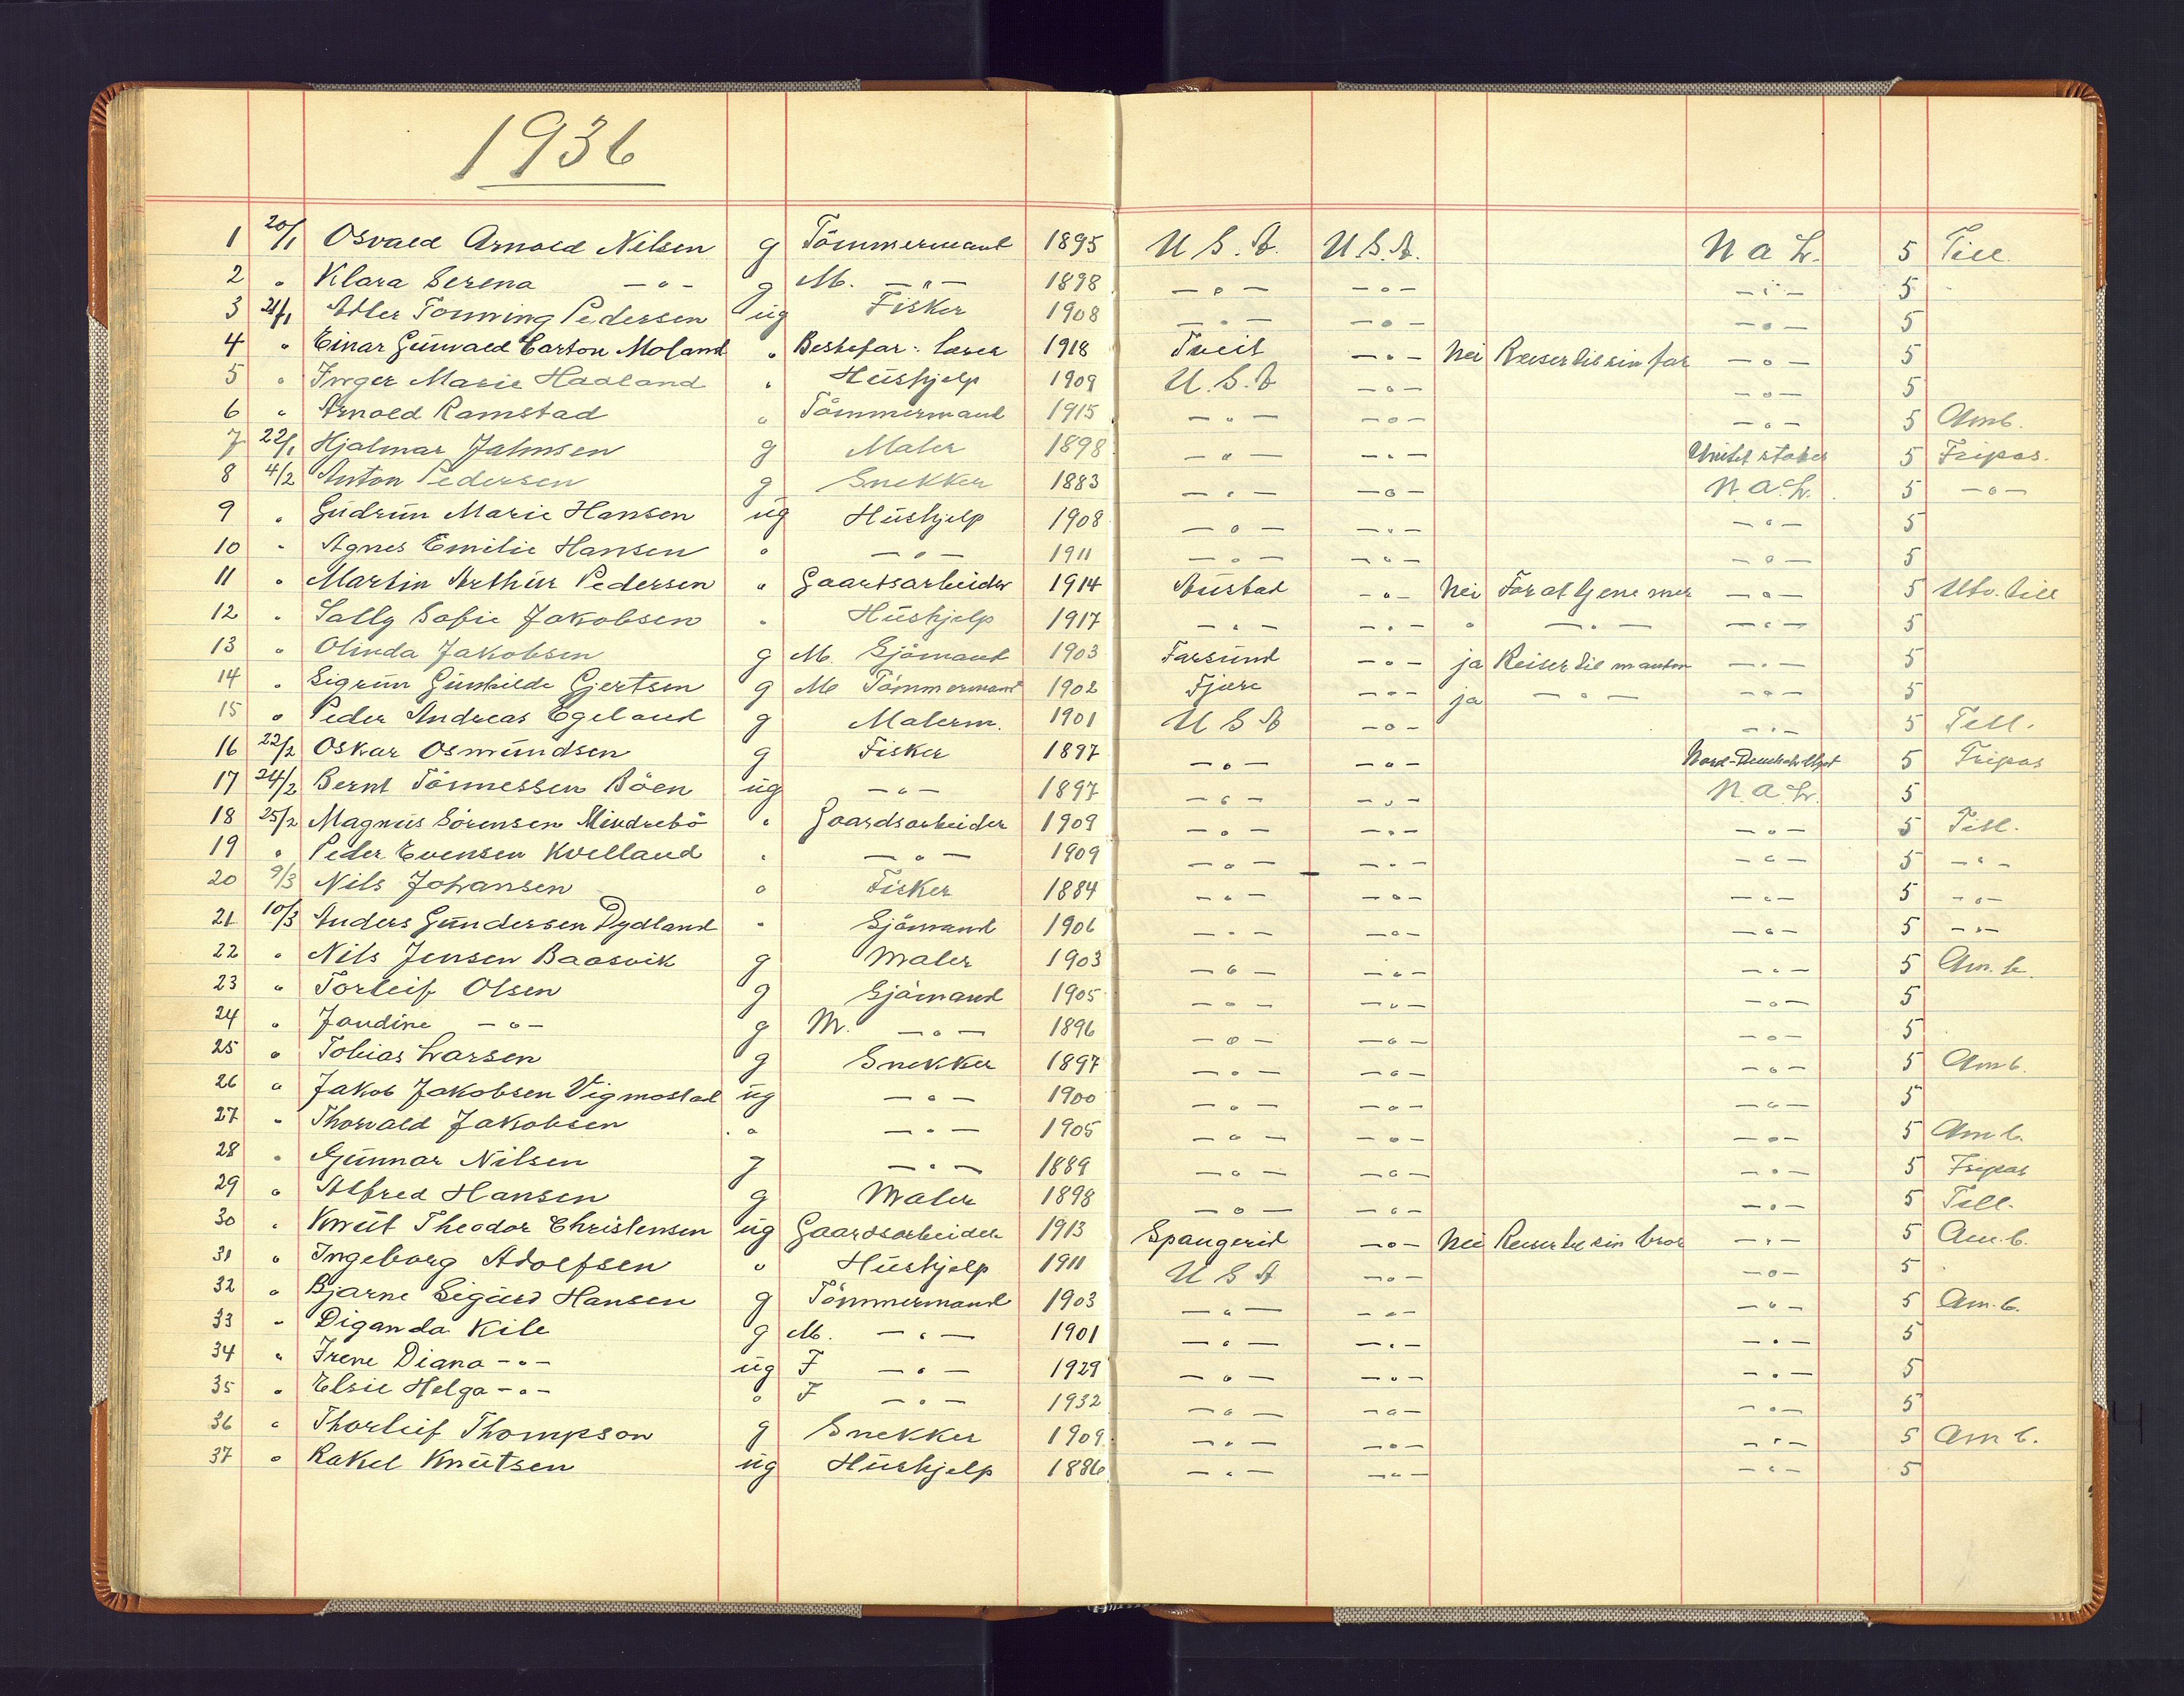 1936
1 20/1 Osvald Arnold Nilsen g Tömmermand 1895 U.S.A. U.S.A. N A L. 5 Till.
2 " Klara Serena — " — g M. — " — 1898 — " — — " — — " — 5
3 21/1 Adler Tonning Pedersen ug Fisker 1908 — " — — " — — " — 5
4 " Einar Gunvald Carton Moland " Bestefar: 1918 Tveit — " — Nei Reiser til sin far — " — 5
5 " Inger Marie Haaland " Hushjelp 1909 U.S.A — " — — " — 5
6 " Arnold Ramstad " Tömmermand 1915 — " — — " — — " — 5 Amb.
7 22/1 Hjalmar Jahnsen g Maler 1898 — " — — " — United states 5 Fripas.
8 4/2 Anton Pedersen g Snekker 1883 — " — — " — N.A.L. 5 — " —
9 " Gudrun Marie Hansen ug Hushjelp 1908 — " — — " — — " — 5
10 " Agnes Emilie Hansen " — " — 1911 — " — — " — — " — 5
11 " Martin Arthur Pedersen " Gaardsarbeider 1914 Austad — " — Nei For at tjene mer — " — 5 Utv. till
12 " Sally Sofie Jakobsen " Hushjelp 1917 — " — — " — " — " — — " — 5
13 " Olinda Jakobsen g M. Sjömand 1903 Farsund — " — ja Reiser til manden — " — 5
14 " Sigrun Gunhilde Gjertsen g M Tömmermand 1902 Fjære — " — ja — " — — " — 5
15 " Peder Andreas Egeland g Malerm. 1901 U S A — " — — " — 5 Till.
16 22/2 Oskar Osmundsen g Fisker 1897 — " — — " — 5 Fripas
17 24/2 Bernt Tönnessen Böen ug — " — 1897 — " — — " — N.A.L. 5
18 25/2 Magnus Sörensen Mindrebö " Gaardsarbeider 1909 — " — — " — — " — 5 Till.
19 " Peder Evensen Kvelland " — " — 1909 — " — — " — — " — 5 — " —
20 9/3 Nils Johansen " Fisker 1884 — " — — " — — " — 5 — " —
21 10/3 Anders Gundersen Dydland " Sjömand 1906 — " — — " — — " — 5 — " —
22 " Nils Jensen Baasvik g Maler 1903 — " — — " — — " — 5 Am. b.
23 " Torleif Olsen g Sjömand 1905 — " — — " — — " — 5
24 " Jandine — " — g M. — " — 1896 — " — — " — — " — 5
25 " Tobias Larsen g Snekker 1897 — " — — " — — " — 5 Am b.
26 " Jakob Jakobsen Vigmostad ug — " — 1900 — " — — " — — " — 5
27 " Thorvald Jakobsen " — " — 1905 — " — — " — — " — 5 Am b.
28 " Gunnar Nilsen g — " — 1889 — " — — " — — " — 5 Fripas
29 " Alfred Hansen g Maler 1898 — " — — " — — " — 5 Till.
30 " Knut Theodor Christensen ug Gaardsarbeider 1913 Spangereid — " — Nei Reiser til sin bror — " — 5 Am. b.
31 " Ingeborg Adolfsen " Hushjelp 1911 U S A — " — — " — 5
32 " Bjarne Sigurd Hansen g Tömmermand 1903 — " — — " — — " — 5 Am. b.
33 " Diganda Kile g M. — " — 1901 — " — — " — — " — 5
34 " Irene Diana — " — ug F — " — 1929 — " — — " — — " — 5
35 " Elsie Helga — " — " F — " — 1932 — " — — " — — " — 5
36 " Thorleif Thompson g Snekker 1909 — " — — " — — " — 5 Am b.
37 " Rakel Knutsen ug Hushjelp 1886 — " — — " — — " — 5